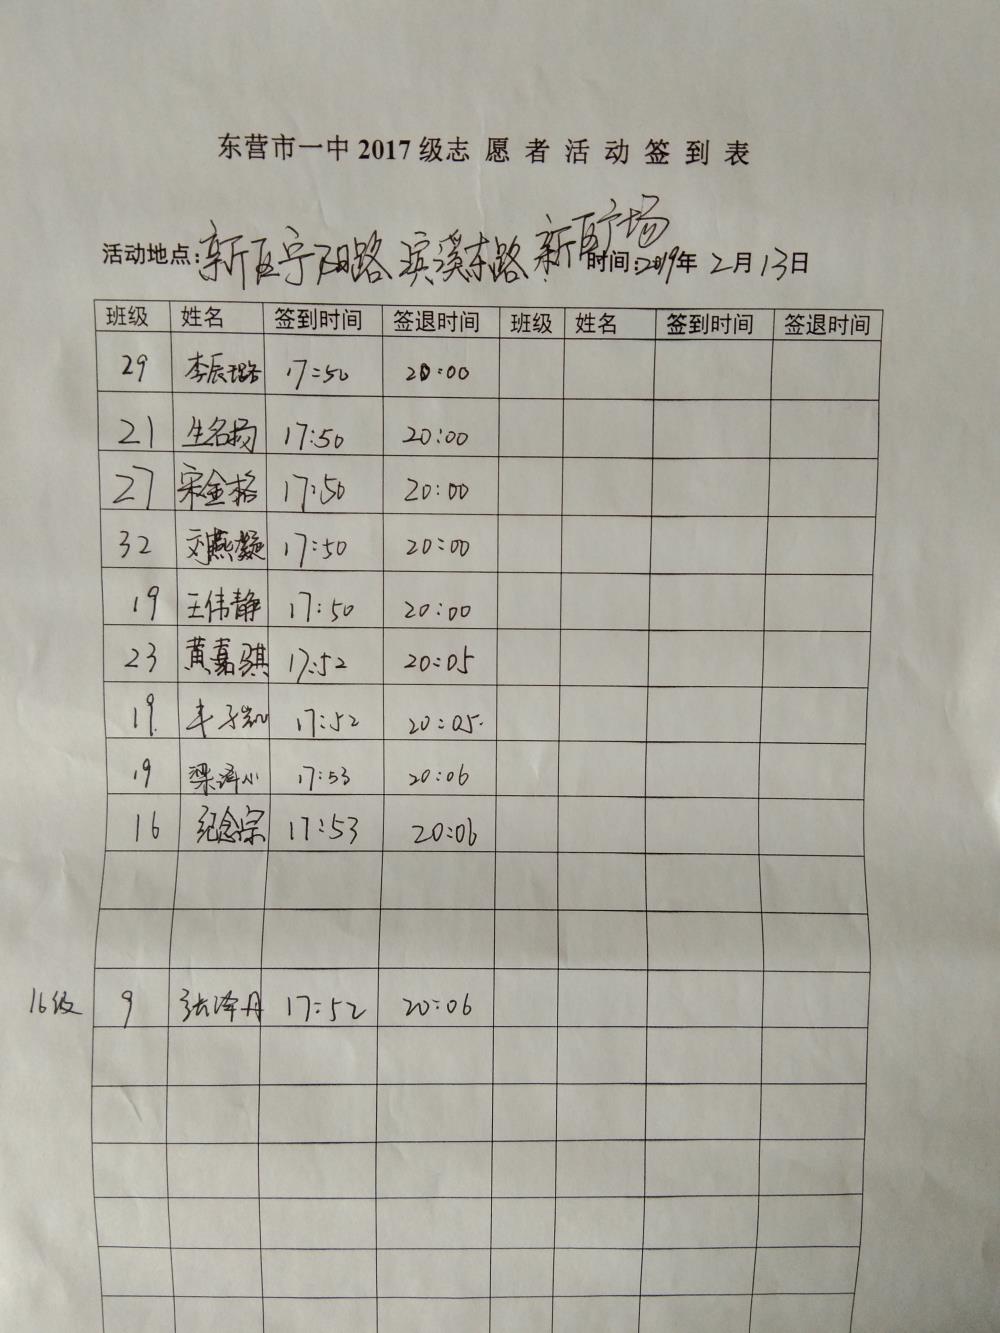 东营市一中2017级志愿者活动签到表
活动地点:新区宁阳路 滨溪东路 新区广场 时间:2019年2月13日
班级 姓名 签到时间 签退时间 班级 姓名 签到时间 签退时间
29 李辰璐 17:50 20:00
21 生名扬 17:50 20:00
27 宋金格 17:50 20:00
32 刘燕凝 17:50 20:00
19 王伟静 17:50 20:00
23 黄嘉骐 17:52 20:05
19 17:52 20:05
19 梁泽小 17:53 20:06
16 纪念宗 17:53 20:06
16级 9 张泽丹 17:52 20:06